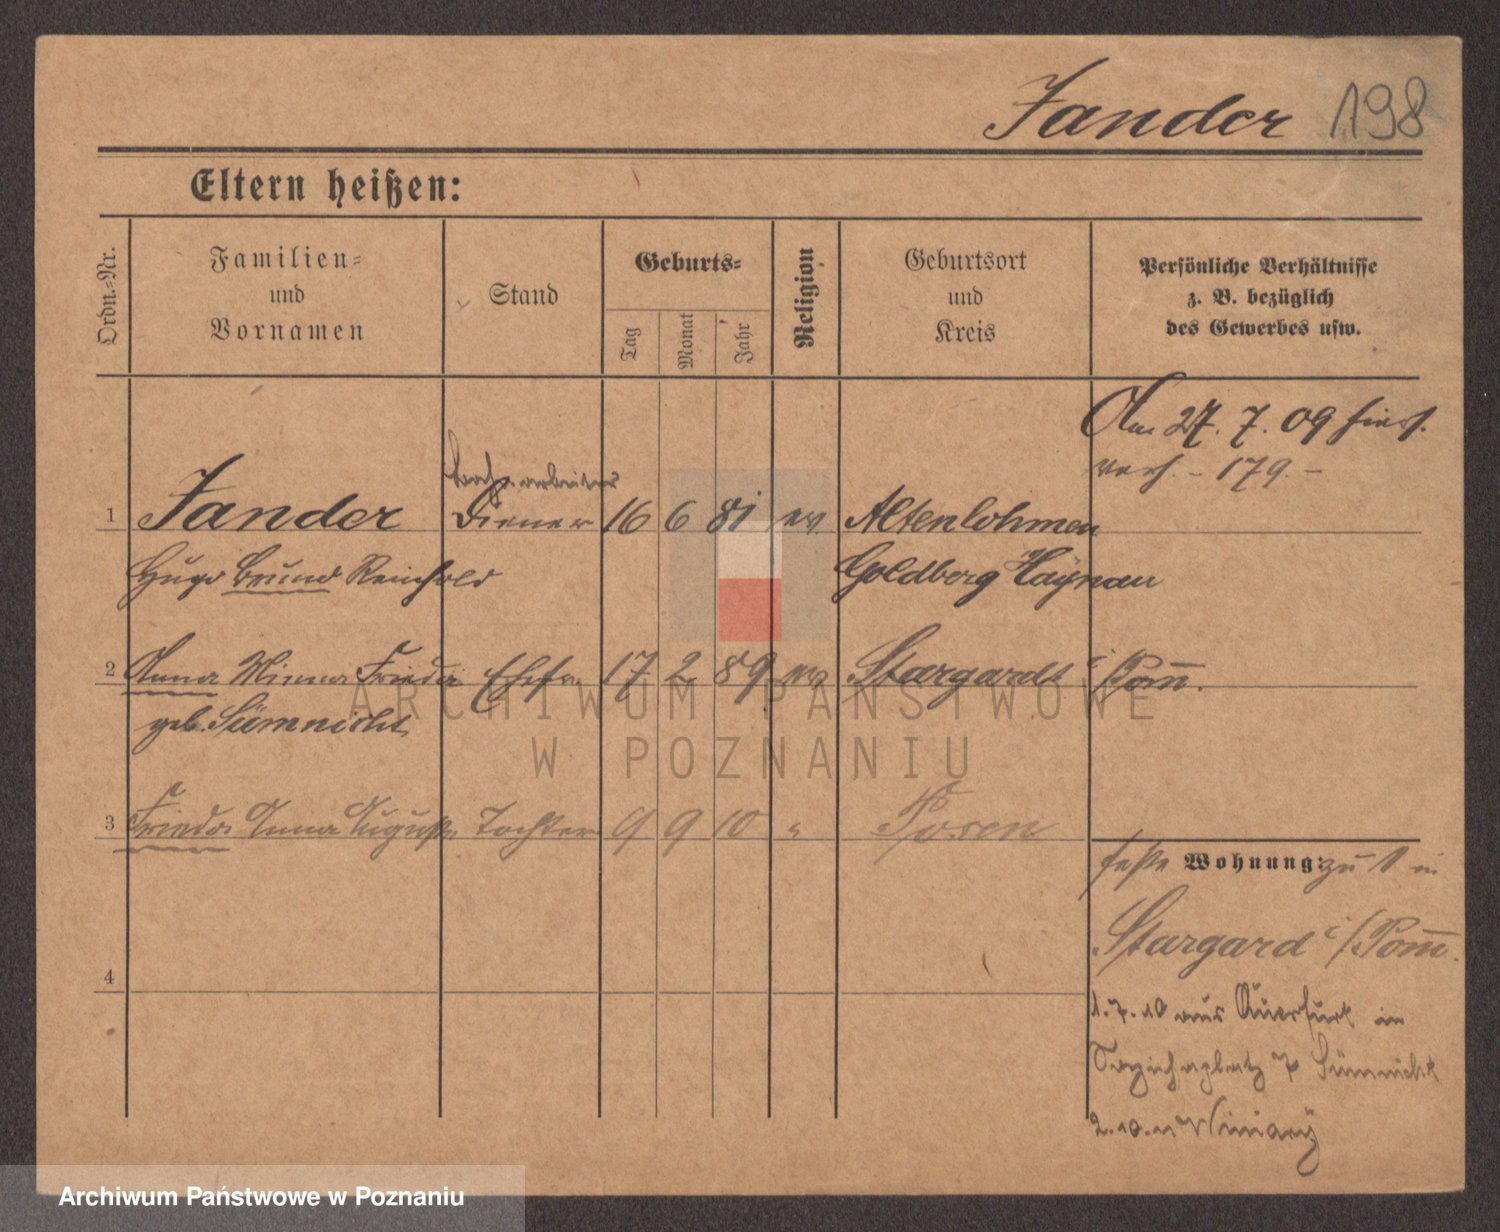 Jander 198
Eltern heißen:
Ordn.=Nr.
Familien=
und
Vornamen
Stand
Geburts=
Tag
Monat
Jahr
Religion
Geburtsort
und
Kreis
Persönliche Verhältnisse
z. B. bezüglich
des Gewerbes usw.
Am 27. 7. 09 hier
verh. - 179. -
arbeiter
1 Jander Diener 16 6 81 ev Altenlohmen
Hugo Bruno Reinhold Goldberg Haÿnau
2 Anna Minna Frieda Ehefr. 17 2 89 ev Stargardt i/Pom.
geb. Sümnicht
3 Frieda Anna Auguste Tochter 9 9 10 " Posen
feste Wohnung: zu 1 in
Stargard i/Pom.
4
1.7.10 aus Querfurt in
7 Sümnicht
2.10.11 Winiarÿ
ARCHIWUM PAŃSTWOWE
W POZNANIU
Archiwum Państwowe w Poznaniu